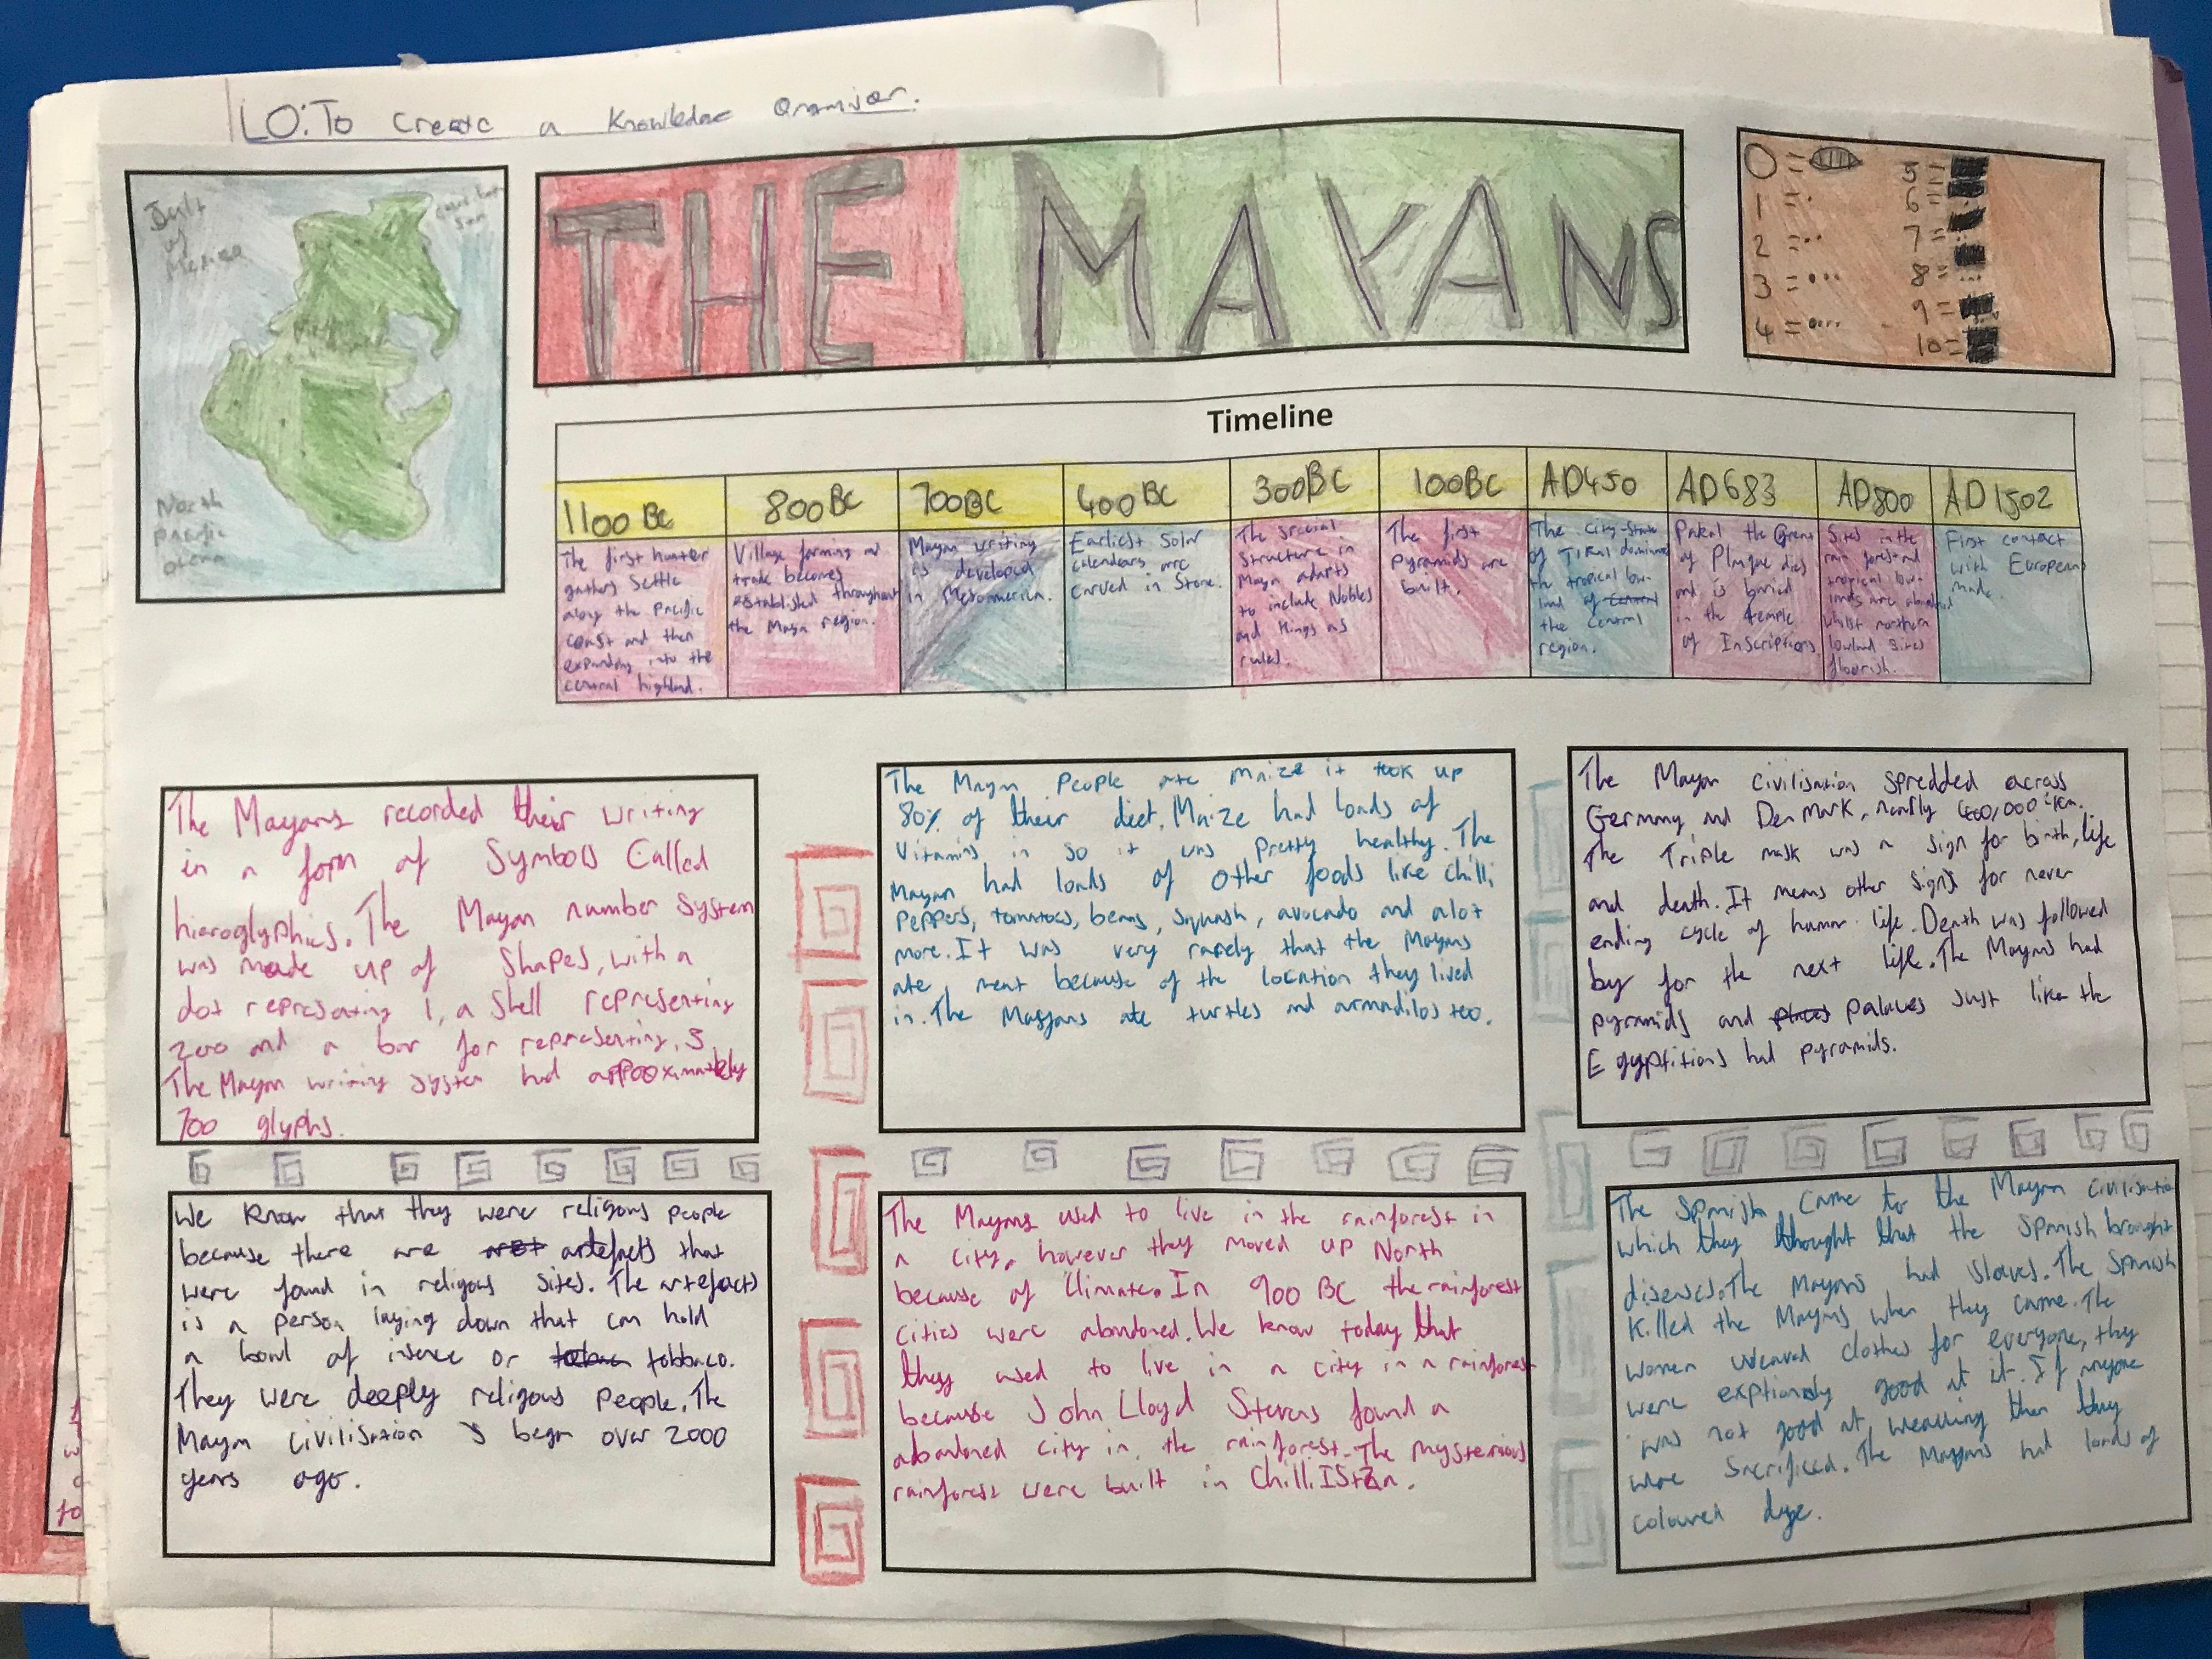 LO: To Create a Knowledge Organiser.
Gulf
of
Mexico
North
pacific
ocean
THE MAYANS
0 =
1 = .
2 = ..
3 = ...
4 = ....
5 =
6 =
7 =
8 =
9 =
10 =
Timeline
1100 BC
The first hunter
gathers settle
along the Pacific
coast and then
expanding into the
central highland.
800 BC
Village farming and
trade becomes
established throughout
the Maya region.
700BC
Mayan writing
is developed
in Mesoamerica.
400 BC
Earliest Solar
calendears are
carved in Stone.
300BC
The social
structure in
Maya adapts
to include Nobles
and Kings as
rules.
100BC
The first
pyramids are
built.
AD450
The city-state
of TIKAL dominates
the tropical low-
land of central
the central
region.
AD683
Pakal the Great
of Planque dies
and is buried
in the temple
of Inscriptions
AD800
Sites in the
rain forest and
tropical low-
lands are
whilst northern
lowland sites
flourish.
AD1502
First contact
with European
made.
The Mayans recorded their writing
in a form of Symbols Called
hieroglyphics. The Mayan number System
was made up of Shapes, with a
dot representing 1, a Shell representing
zero and a bar for representing 5.
The Mayan writing system had approximately
700 glyphs.
The Mayan People ate maize it took up
80% of their diet. Maize had loads of
Vitamins in so it was pretty healthy. The
Mayan had loads of other foods like chilli
peppers, tomatoes, beans, squash, avocado and alot
more. It was very rarely that the Mayans
ate meat because of the location they lived
in. The Mayans ate turtles and armadilos too.
The Mayan Civilisation Spredded across
Germany and Denmark, nearly
The Triple mask was a sign for birth, life
and death. It means other signs for never
ending cycle of human life. Death was followed
by for the next life. The Mayans had
pyramids and places palaces just like the
Egyptitions had pyramids.
We know that they were religous people
because there are artefacts that
were found in religous sites. The artefacts
is a person laying down that can hold
a bowl of insence or tobbaco.
They were deeply religous people. The
Mayan civilisation began over 2000
years ago.
The Mayans used to live in the rainforest in
a city, however they moved up North
because of Climate. In 900 BC the rainforest
cities were abandoned. We know today that
they used to live in a city in a rainforest
because John Lloyd Stevens found a
abandoned city in the rainforest. The mysterious
rainforest were built in Chilli IStZan.
The Spanish Came to the Mayan Civilisation
which they thought that the Spanish brought
diseases. The Mayans had slaves. The Spanish
Killed the Mayans when they came. The
women weaved clothes for everyone, they
were exptionaly good at it. If anyone
was not good at weaving then they
were Sacrificed. The Mayans had loads of
coloured dye.